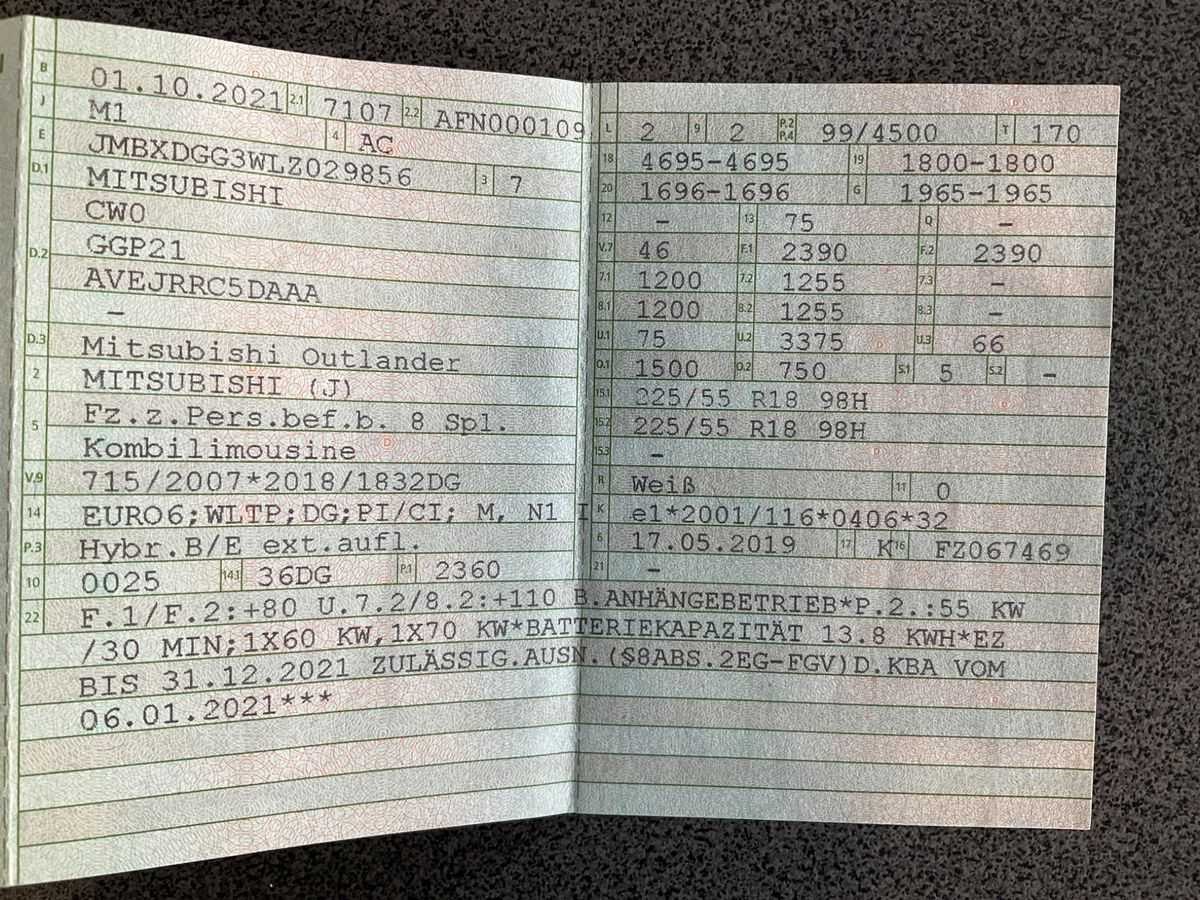 B 01.10.2021 2.1 7107 2.2 AFN000109
J M1 4 AC
E JMBXDGG3WLZ029856 3 7
D.1 MITSUBISHI
CW0
D.2 GGP21
AVEJRRC5DAAA
–
D.3 Mitsubishi Outlander
2 MITSUBISHI (J)
5 Fz.z.Pers.bef.b. 8 Spl.
Kombilimousine
V.9 715/2007*2018/1832DG
14 EURO6;WLTP;DG;PI/CI; M, N1 I
P.3 Hybr.B/E ext.aufl.
10 0025 14.1 36DG P.1 2360
L 2 9 2 P.2 P.4 99/4500 T 170
18 4695-4695 19 1800-1800
20 1696-1696 G 1965-1965
12 – 13 75 Q –
V.7 46 F.1 2390 F.2 2390
7.1 1200 7.2 1255 7.3 –
8.1 1200 8.2 1255 8.3 –
U.1 75 U.2 3375 U.3 66
O.1 1500 O.2 750 S.1 5 S.2 –
15.1 225/55 R18 98H
15.2 225/55 R18 98H
15.3 –
R Weiß 11 0
K e1*2001/116*0406*32
6 17.05.2019 17 K 16 FZ067469
21 –
22 F.1/F.2:+80 U.7.2/8.2:+110 B.ANHÄNGEBETRIEB*P.2.:55 KW
/30 MIN;1X60 KW,1X70 KW*BATTERIEKAPAZITÄT 13.8 KWH*EZ
BIS 31.12.2021 ZULÄSSIG.AUSN.(§8ABS.2EG-FGV)D.KBA VOM
06.01.2021***